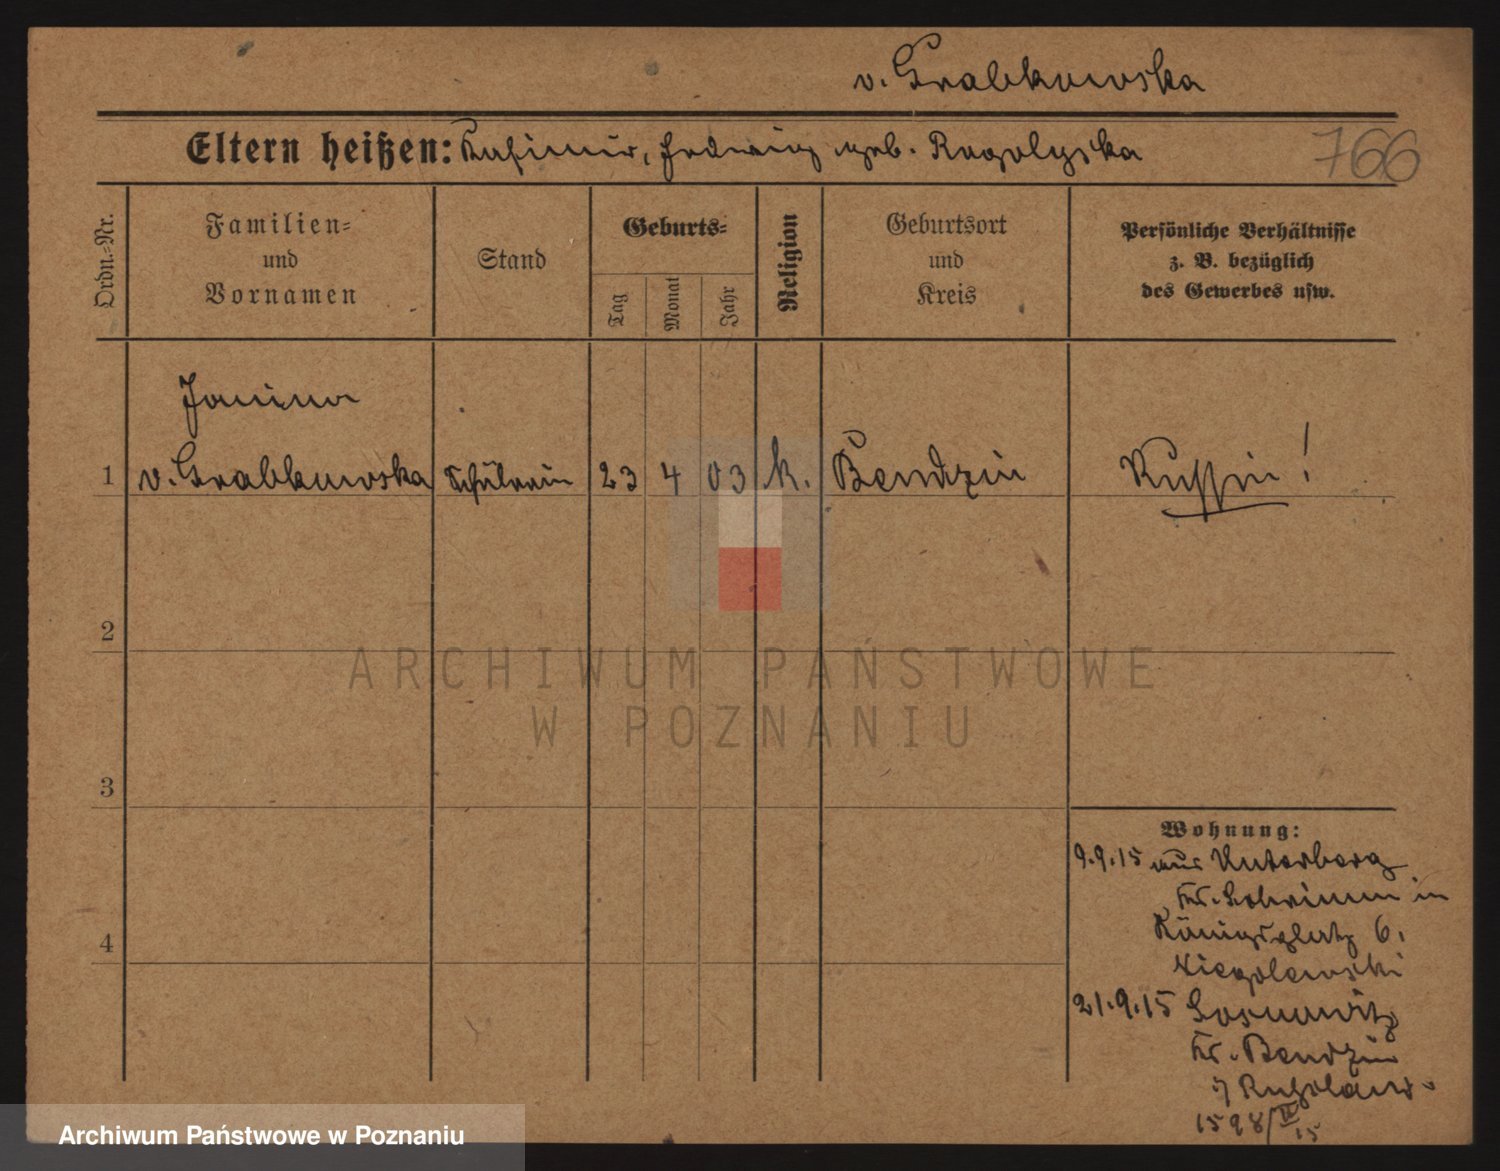 v. Grabkowska
Eltern heißen: Kasimir, Hedwig geb. Rogolyska
766
Ordn.-Nr.
Familien-
und
Vornamen
Stand
Geburts-
Tag
Monat
Jahr
Religion
Geburtsort
und
Kreis
Persönliche Verhältnisse
z. B. bezüglich
des Gewerbes usw.
Janina
1 v. Grabkowska Schülerin 23 4 03 k. Bendzin Russin!
2
ARCHIWUM PAŃSTWOWE
W POZNANIU
3
Wohnung:
9.9.15 aus Unterberg
Kr. Schrimm in
Königsplatz 6.
Niegolewski
4
21.9.15 Sosnowitz
Kr. Bendzin
i/ Russland
1598/IX 15
Archiwum Państwowe w Poznaniu